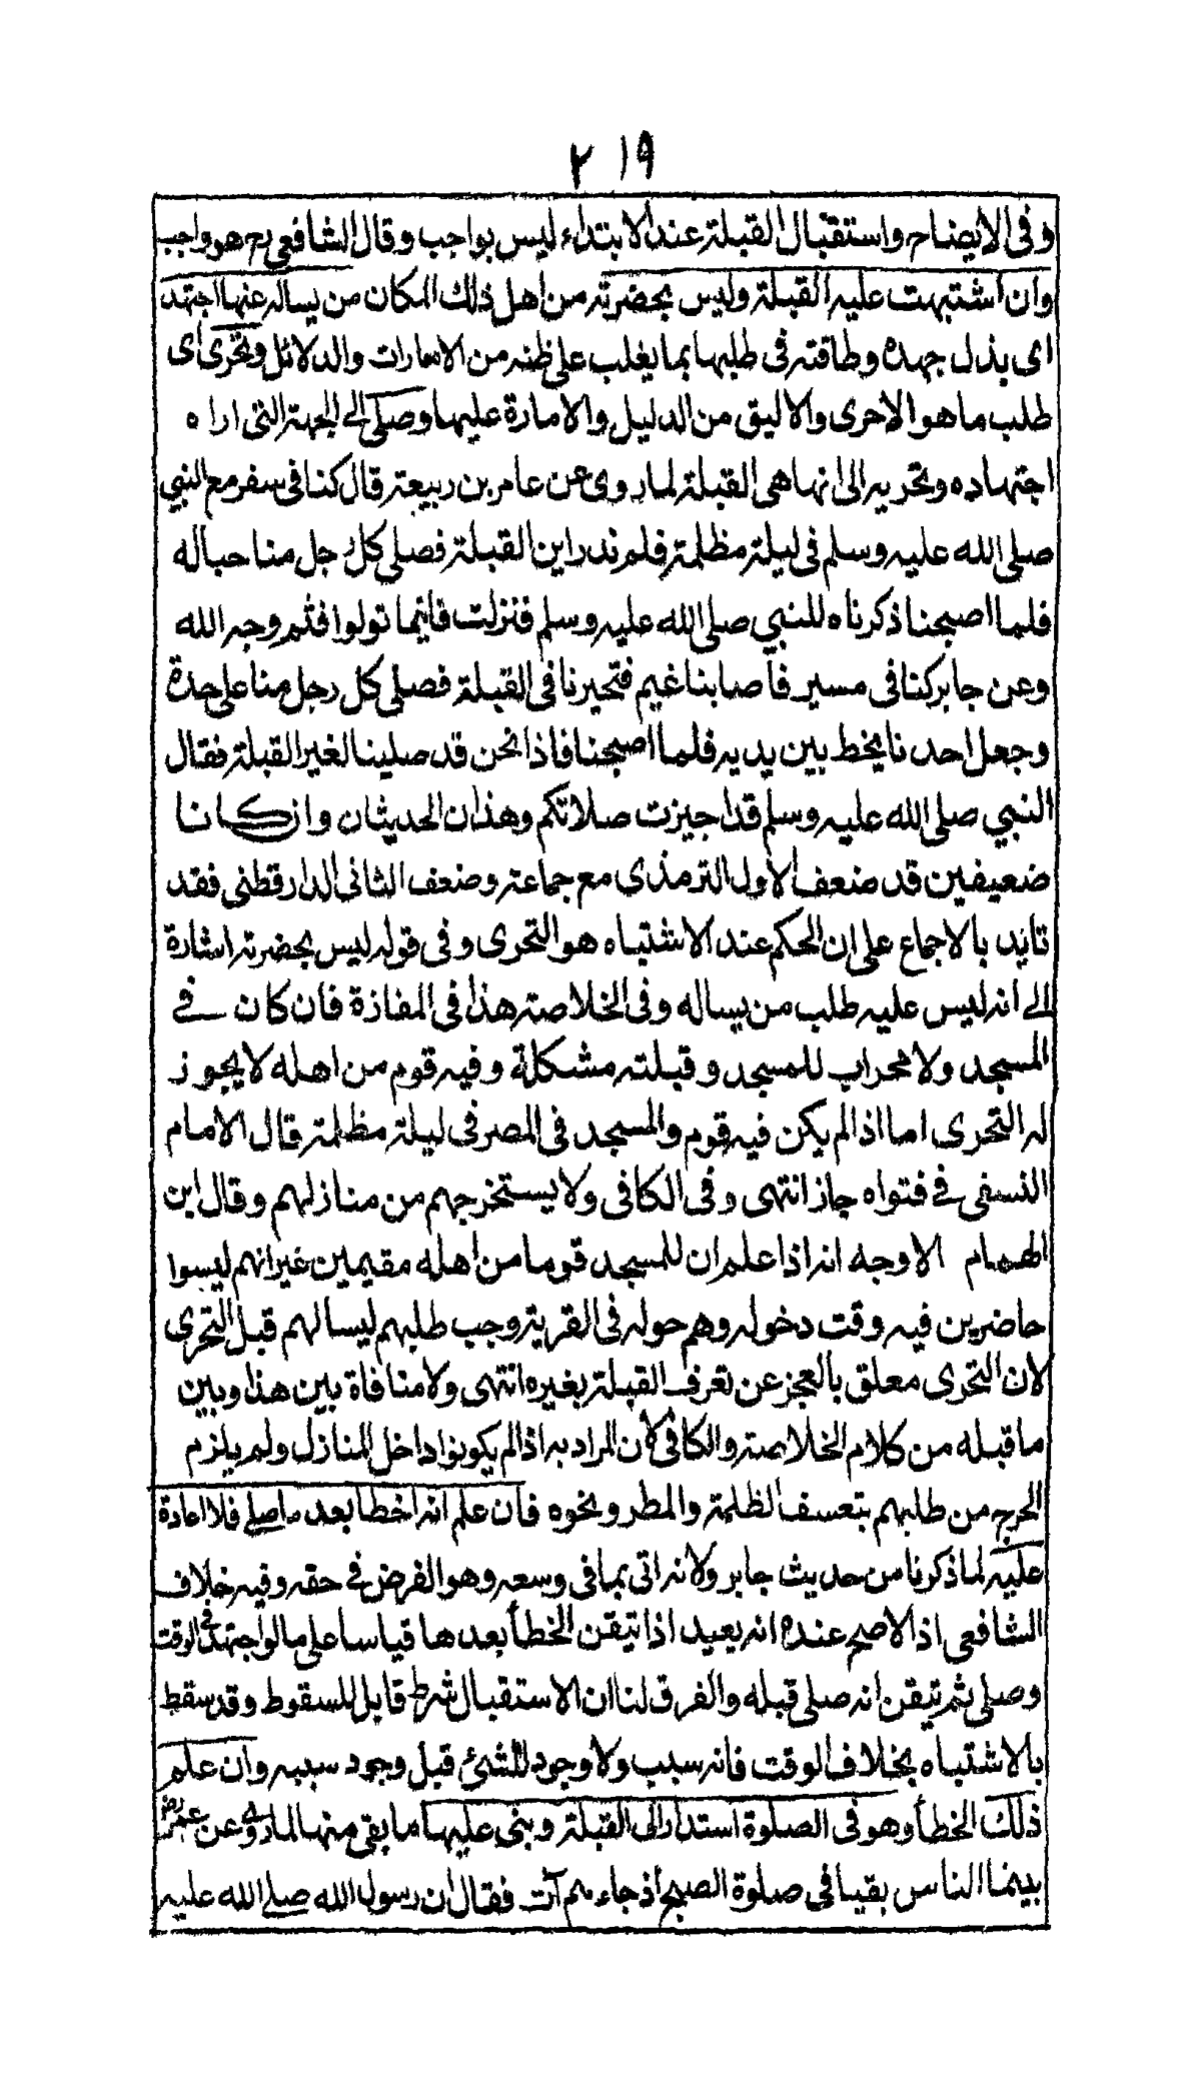 ٢١٩
وفى الايضاح واستقبال القبلة عند الابتداء ليس بواجب وقال الشافعى رح هو واجب
وان اشتبهت عليه القبلة وليس بحضرته من اهل ذلك المكان من يساله عنها اجتهد
اى بذل جهده وطاقته فى طلبها بما يغلب على ظنه من الامارات والدلائل وتحرى اى
طلب ما هو الاحرى والاليق من الدليل والامارة عليها وصلى الى الجهة التى اراه
اجتهاده وتحريه الى انها هى القبلة لما روى عن عامر بن ربيعة قال كنا فى سفر مع النبي
صلى الله عليه وسلم فى ليلة مظلمة فلم ندر اين القبلة فصلى كل رجل منا حباله
فلما اصبحنا ذكرناه للنبي صلى الله عليه وسلم فنزلت فاينما تولوا فثم وجه الله
وعن جابر كنا فى مسير فاصابنا غيم فتحيرنا فى القبلة فصلى كل رجل منا على حدة
وجعل احدنا يخط بين يديه فلما اصبحنا فاذا نحن قد صلينا لغير القبلة فقال
النبي صلى الله عليه وسلم قد اجيزت صلاتكم وهذان الحديثان وان كانا
ضعيفين قد ضعف الاول الترمذى مع جماعة وضعف الثانى الدارقطنى فقد
تايد بالاجماع على ان الحكم عند الاشتباه هو التحرى وفى قوله ليس بحضرته اشارة
الى انه ليس عليه طلب من يساله وفى الخلاصة هذا فى المفازة فان كان فے
المسجد ولا محراب للمسجد وقبلته مشكلة وفيه قوم من اهله لا يجوز
له التحرى اما اذا لم يكن فيه قوم والمسجد فى المصر فى ليلة مظلمة قال الامام
النسفى فے فتواه جاز انتهى وفى الكافى ولا يستخرجهم من منازلهم وقال ابن
الهمام الاوجه انه اذا علم ان للمسجد قوما من اهله مقيمين غير انهم ليسوا
حاضرين فيه وقت دخوله وهم حوله فى القرية وجب طلبهم ليسالهم قبل التحرى
لان التحرى معلق بالعجز عن تعرف القبلة بغيره انتهى ولا منافاة بين هذا وبين
ما قبله من كلام الخلاصة والكافى لان المراد به اذا لم يكونوا داخل المنازل ولم يلزم
الحرج من طلبهم بتعسف الظلمة والمطر ونحوه فان علم انه اخطا بعد ما صلى فلا اعادة
عليه لما ذكرنا من حديث جابر ولانه اتى بما فى وسعه وهو الفرض فے حقه وفيه خلاف
الشافعى اذ الاصح عنده انه يعيد اذا تيقن الخطأ بعدها قياسا على ما لو اجتهد فى الوقت
وصلى ثم تيقن انه صلى قبله والفرق لنا ان الاستقبال شرط قابل للسقوط وقد سقط
بالاشتباه بخلاف الوقت فانه سبب ولا وجود للشئ قبل وجود سببه وان علم
ذلك الخطأ وهو فى الصلوة استدار الى القبلة وبنى عليها ما بقى منها لما روى عن عمر رض
بينما الناس بقبا فى صلوة الصبح اذ جاءهم آت فقال ان رسول الله صلى الله عليه